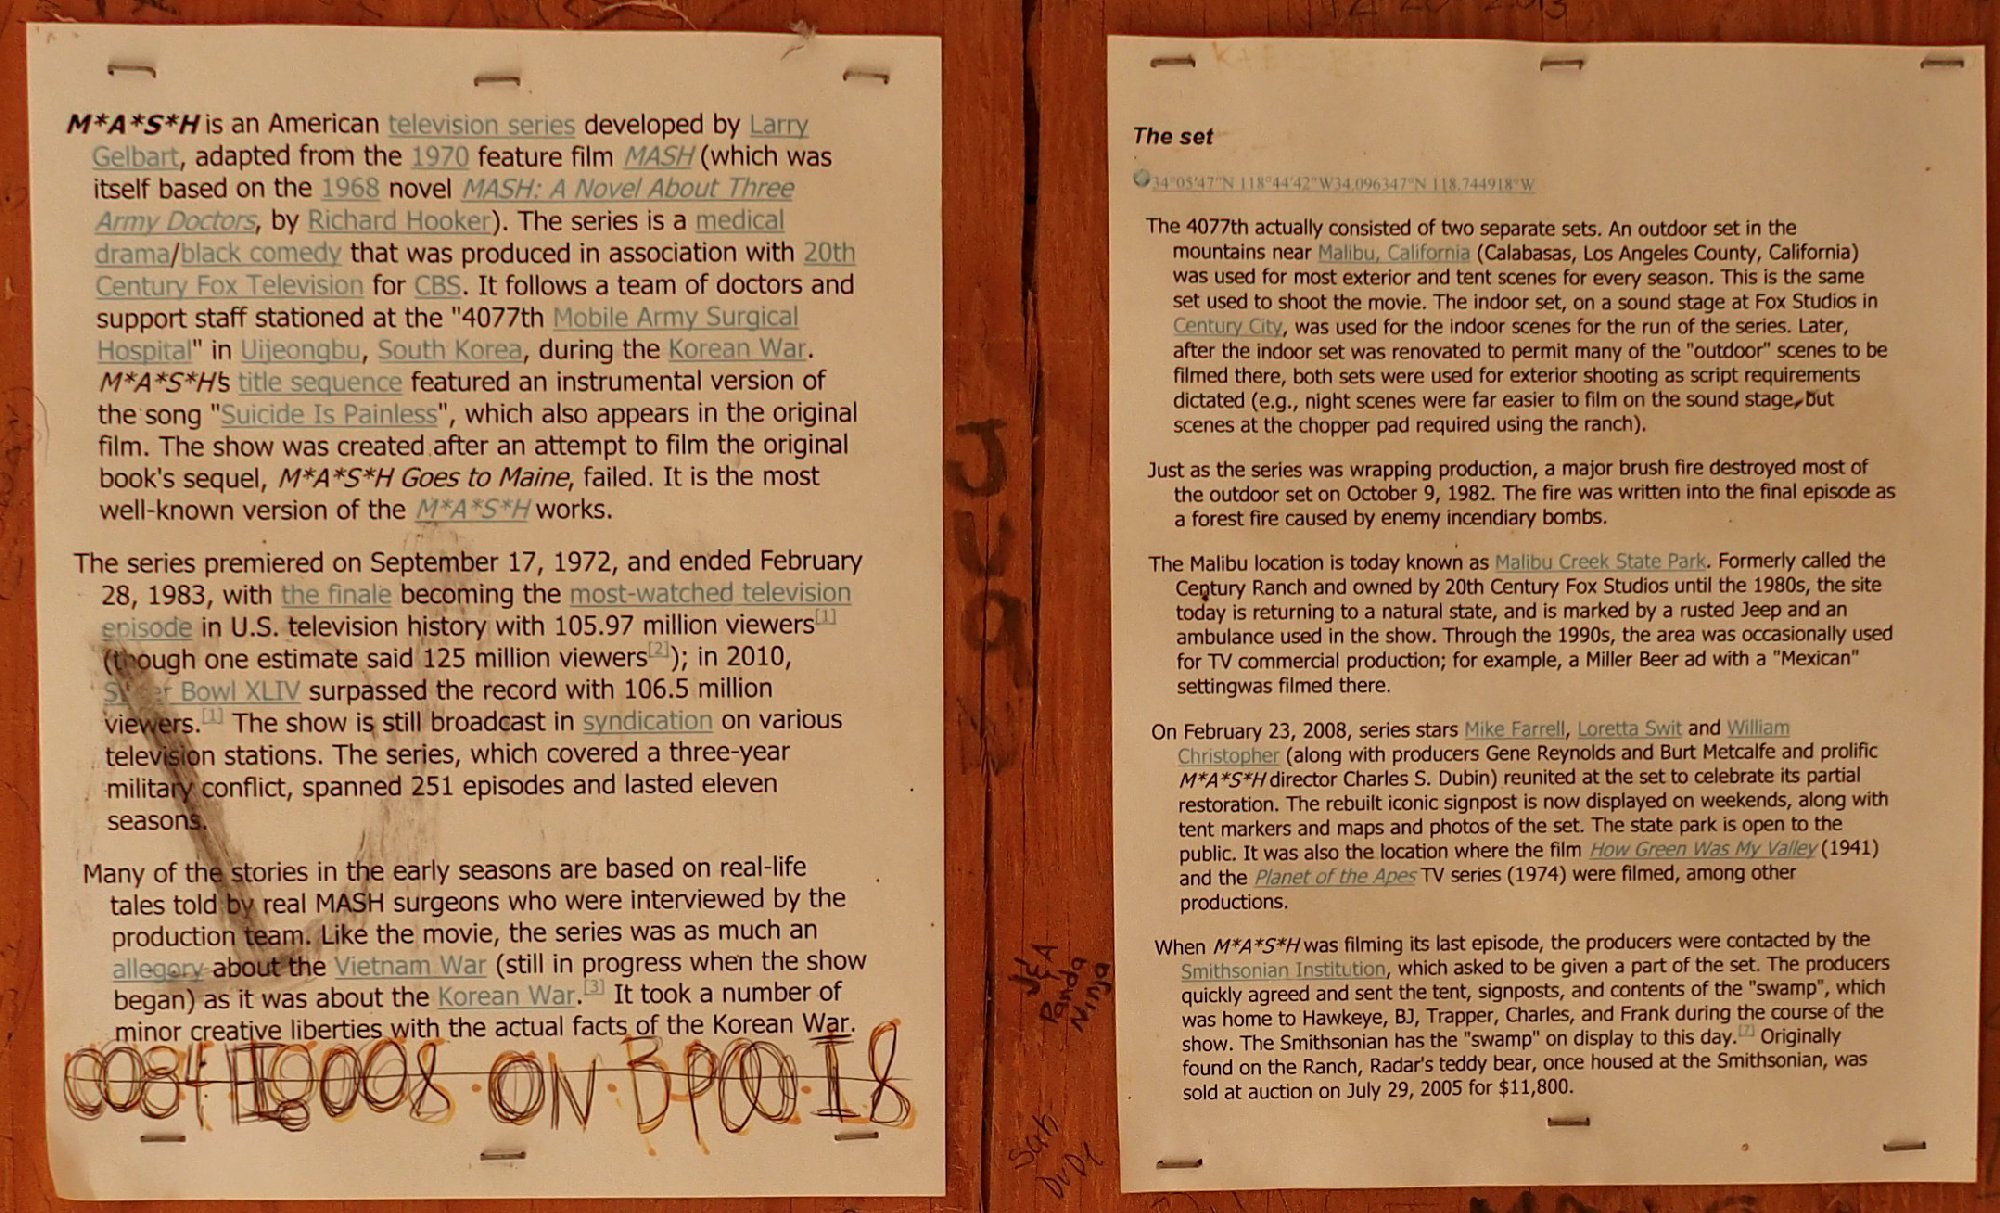 M*A*S*H is an American television series developed by Larry
Gelbart, adapted from the 1970 feature film MASH (which was
itself based on the 1968 novel MASH: A Novel About Three
Army Doctors, by Richard Hooker). The series is a medical
drama/black comedy that was produced in association with 20th
Century Fox Television for CBS. It follows a team of doctors and
support staff stationed at the "4077th Mobile Army Surgical
Hospital" in Uijeongbu, South Korea, during the Korean War.
M*A*S*H's title sequence featured an instrumental version of
the song "Suicide Is Painless", which also appears in the original
film. The show was created after an attempt to film the original
book's sequel, M*A*S*H Goes to Maine, failed. It is the most
well-known version of the M*A*S*H works.
The series premiered on September 17, 1972, and ended February
28, 1983, with the finale becoming the most-watched television
episode in U.S. television history with 105.97 million viewers[1]
(though one estimate said 125 million viewers[2]); in 2010,
Super Bowl XLIV surpassed the record with 106.5 million
viewers.[1] The show is still broadcast in syndication on various
television stations. The series, which covered a three-year
military conflict, spanned 251 episodes and lasted eleven
seasons.
Many of the stories in the early seasons are based on real-life
tales told by real MASH surgeons who were interviewed by the
production team. Like the movie, the series was as much an
allegory about the Vietnam War (still in progress when the show
began) as it was about the Korean War.[3] It took a number of
minor creative liberties with the actual facts of the Korean War.
ON
J&A
Panda
Ninja
The set
34°05'47"N 118°44'42"W34.096347°N 118.744918°W
The 4077th actually consisted of two separate sets. An outdoor set in the
mountains near Malibu, California (Calabasas, Los Angeles County, California)
was used for most exterior and tent scenes for every season. This is the same
set used to shoot the movie. The indoor set, on a sound stage at Fox Studios in
Century City, was used for the indoor scenes for the run of the series. Later,
after the indoor set was renovated to permit many of the "outdoor" scenes to be
filmed there, both sets were used for exterior shooting as script requirements
dictated (e.g., night scenes were far easier to film on the sound stage, but
scenes at the chopper pad required using the ranch).
Just as the series was wrapping production, a major brush fire destroyed most of
the outdoor set on October 9, 1982. The fire was written into the final episode as
a forest fire caused by enemy incendiary bombs.
The Malibu location is today known as Malibu Creek State Park. Formerly called the
Century Ranch and owned by 20th Century Fox Studios until the 1980s, the site
today is returning to a natural state, and is marked by a rusted Jeep and an
ambulance used in the show. Through the 1990s, the area was occasionally used
for TV commercial production; for example, a Miller Beer ad with a "Mexican"
settingwas filmed there.
On February 23, 2008, series stars Mike Farrell, Loretta Swit and William
Christopher (along with producers Gene Reynolds and Burt Metcalfe and prolific
M*A*S*H director Charles S. Dubin) reunited at the set to celebrate its partial
restoration. The rebuilt iconic signpost is now displayed on weekends, along with
tent markers and maps and photos of the set. The state park is open to the
public. It was also the location where the film How Green Was My Valley (1941)
and the Planet of the Apes TV series (1974) were filmed, among other
productions.
When M*A*S*H was filming its last episode, the producers were contacted by the
Smithsonian Institution, which asked to be given a part of the set. The producers
quickly agreed and sent the tent, signposts, and contents of the "swamp", which
was home to Hawkeye, BJ, Trapper, Charles, and Frank during the course of the
show. The Smithsonian has the "swamp" on display to this day.[7] Originally
found on the Ranch, Radar's teddy bear, once housed at the Smithsonian, was
sold at auction on July 29, 2005 for $11,800.